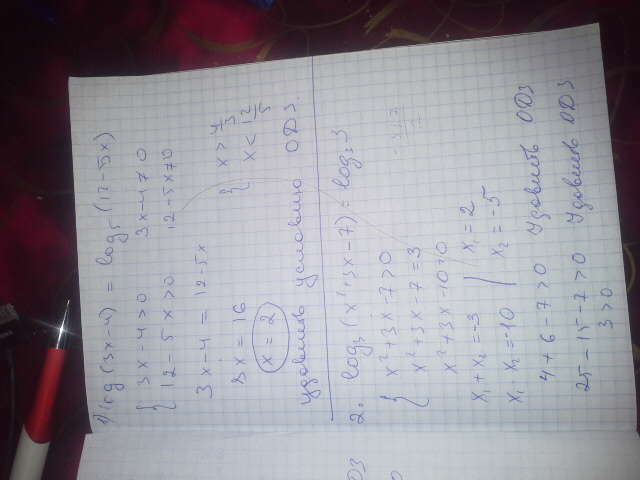 1) log (3x-4) = log₅ (12-5x)
{ 3x-4>0    3x-4≠0
12-5x>0    12-5x≠0
3x-4 = 12-5x
8x = 16    { x > 4/3
x = 2    x < 12/5
удовлетв условию ОДЗ.
2. log₃ (x²+3x-7) = log₃ 3
{ x²+3x-7>0
x²+3x-7=3
x²+3x-10=0
x₁+x₂=-3    x₁=2
x₁·x₂=-10    x₂=-5
4+6-7>0    Удовлетв ОДЗ
25-15-7>0    Удовлетв ОДЗ
3>0
ОДЗ